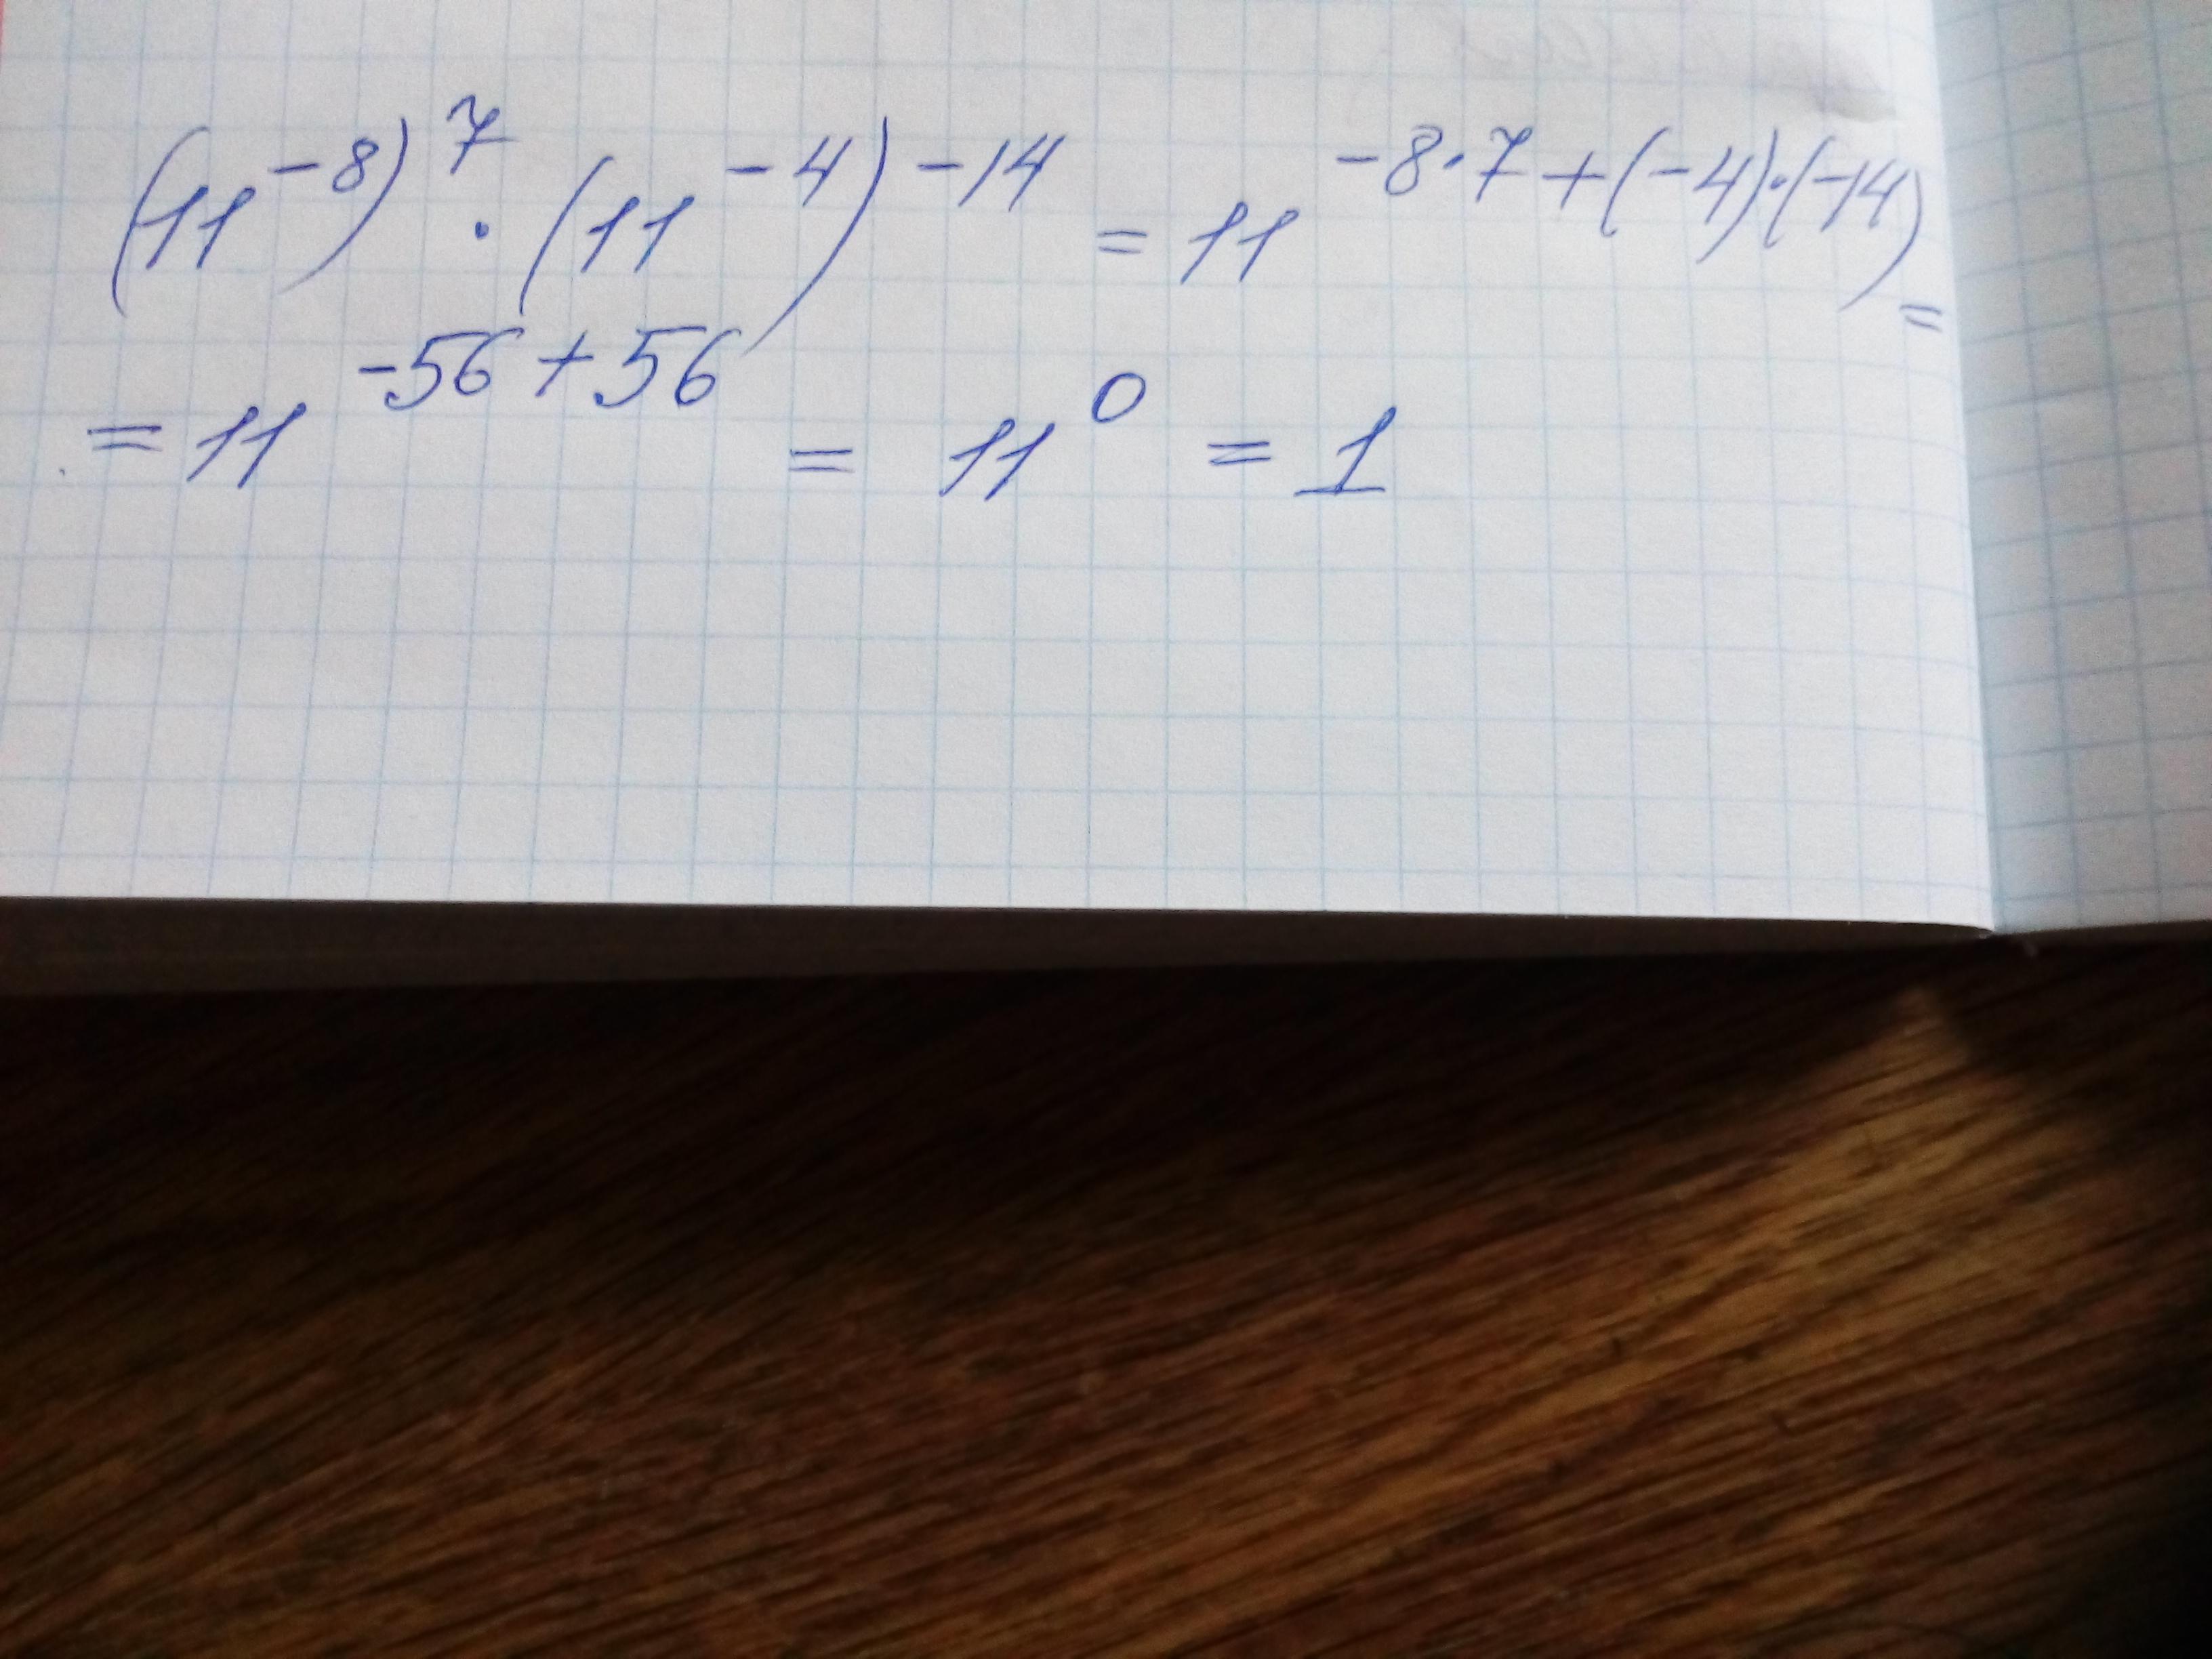 (11^-8)^7 · (11^-4)^-14 = 11^-8·7+(-4)·(-14) =
= 11^-56+56 = 11^0 = 1